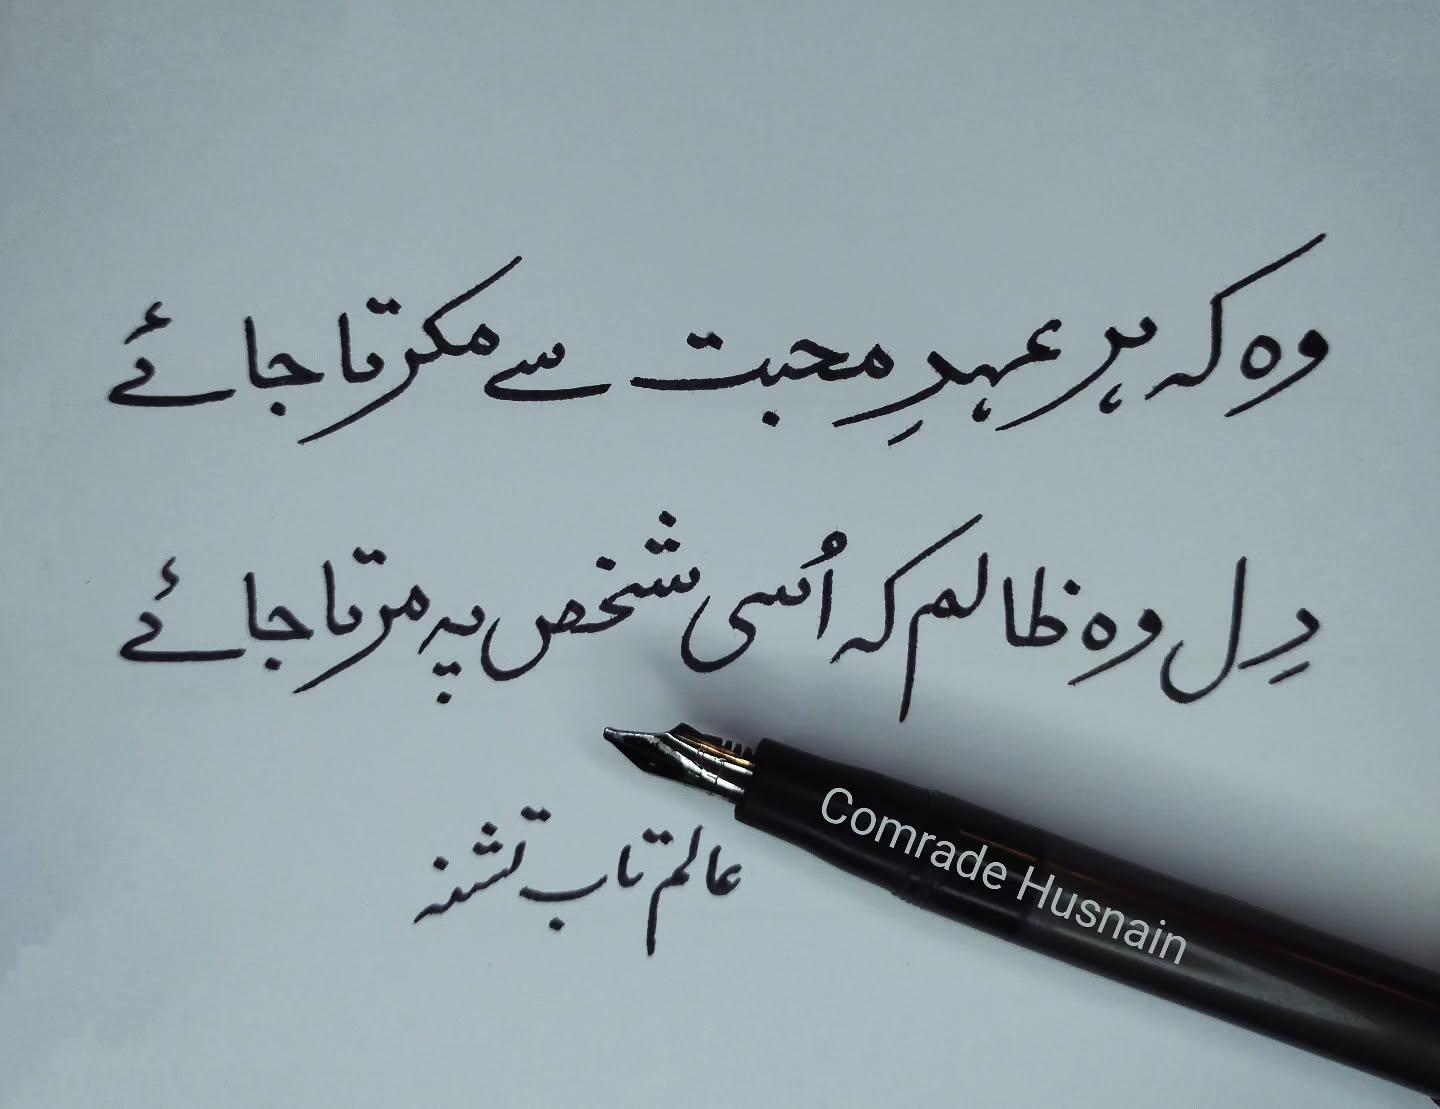 وہ کہ ہر عہدِ محبت سے مکرتا جائے
دِل وہ ظالم کہ اُسی شخص پہ مرتا جائے
عالم تاب تشنہ
Comrade Husnain